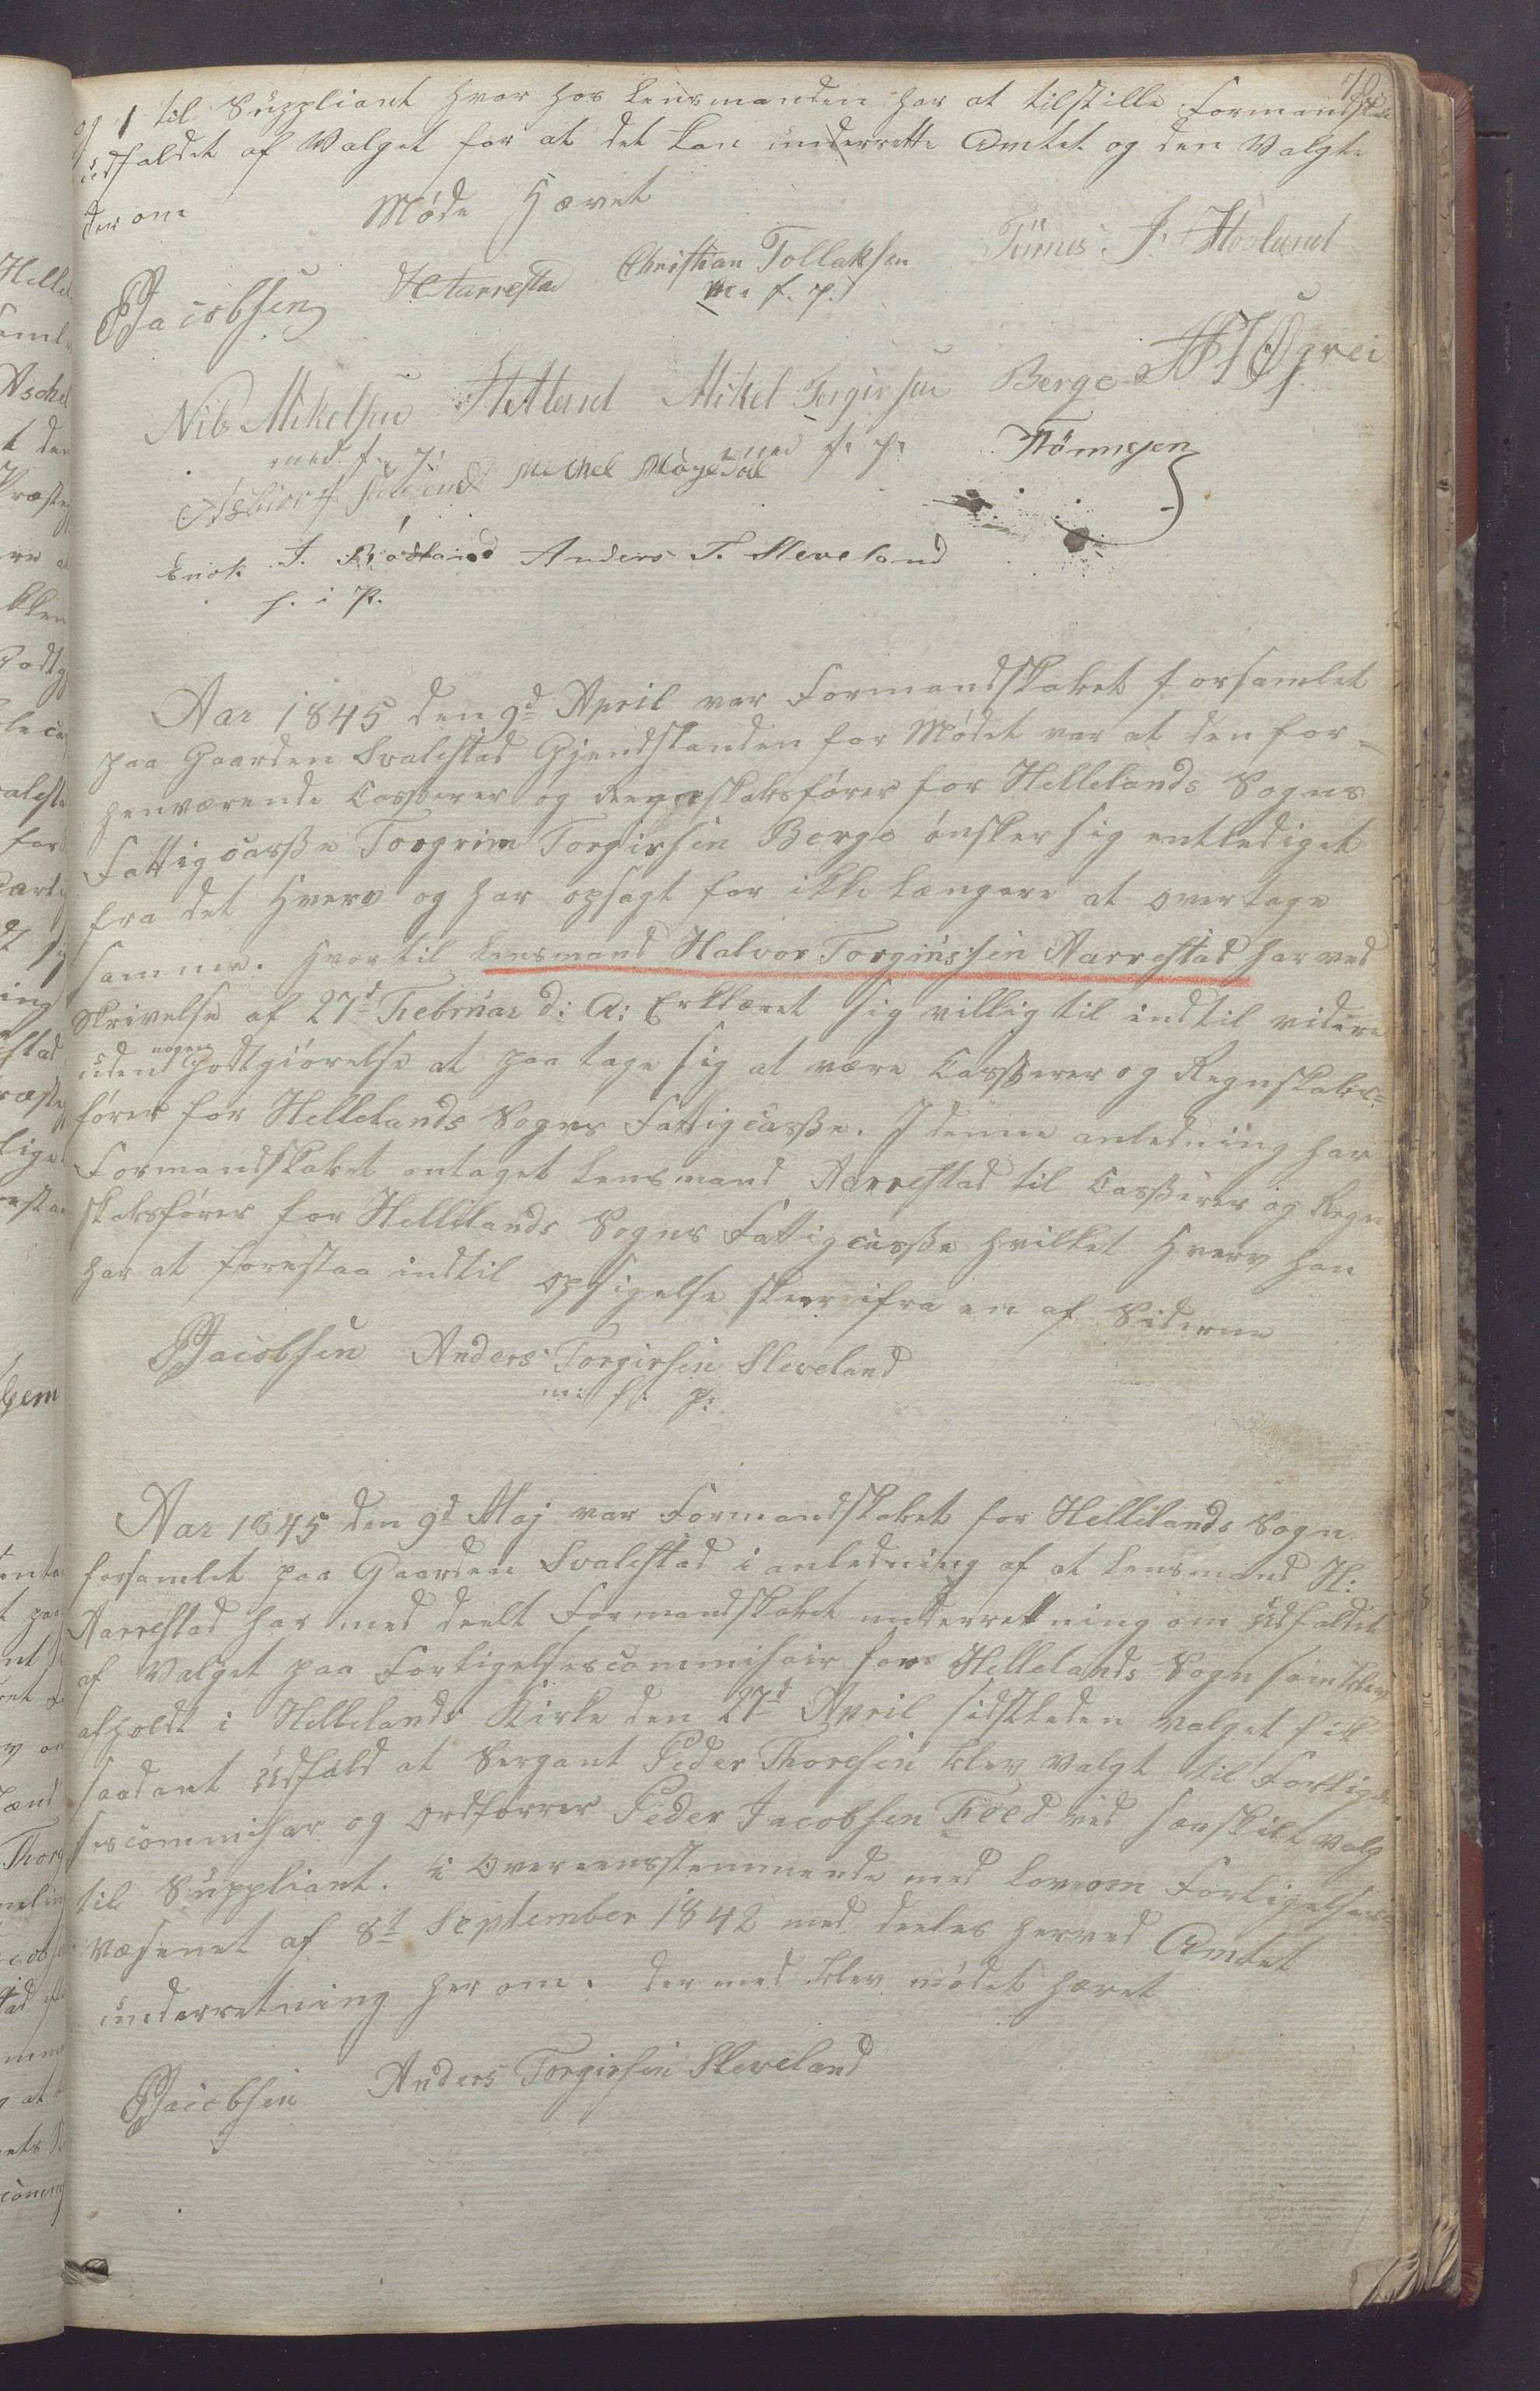 og 1 til Suppliant hvor hos Lensmanden har at tilstille Formandskabet
Udfaldet af Valget for at det kan underrette Amtet og den Valgte
der om
Møde Hævet
PJacobsen HTarrestad Christian Tollaksen Tønnes J. Hovland
m. f. p.
Nils Mikelsen Hetland Mikel Torgirsen Berge
med f. p. med f. p.
Asbiørn Michel Møgedal Tønnesen
Enok J. Rødland Anders T. Sleveland
f. i P.
Aar 1845 den 9d April var Formandskabet forsamlet
paa Gaarden Svalestad Gjendstanden for Mødet var at den for=
henværende Casserer og Regnskabsfører for Hellelands Sogns
Fattigcasse Torgrim Torgirsen Berge ønsker sig entlediget
fra det Hverv og har opsagt for ikke længere at overtage
samme. Hvortil Lensmand Halvor Torginssen Aarrestad har ved
Skrivelse af 27d Februar d: A: Erklæret sig villig til indtil videre
uden nogen Godtgiørelse at paa tage sig at være Casserer og Regnskabs=
fører for Hellelands Sogns Fattigcasse. I denne anledning har
Formandskabet antaget Lensmand Aarrestad til Casserer og Regn
skabsfører for Hellelands Sogns Fattigcasse hvilket Hverv han
har at forestaa indtil Opsigelse skeer ifra en af Siderne
PJacobsen Anders Torgirsen Sleveland
m: f: p:
Aar 1845 den 9d Maj var Formandskabet for Hellelands Sogn
forsamlet paa Gaarden Svalestad i anledning af at Lensmand H:
Aarrestad har med deelt Formandskabet underrettning om Udfaldet
af Valget paa Forligelsescommisair for Hellelands Sogn som blev
afholdt i Hellelands Kirke den 27d April sidstleden Valget fik
saadant Udfald at Sergant Peder Thoresen blev valgt til Forligel
sescommisar og Ordfører Peder Jacobsen Feed ved særskilt valg
til Suppliant. i Overeensstemmende med Lov om Forligelses=
væsenet af 8d September 1842 med deeles herved Amtet
underretning her om. der med blev mødet hævet
PJacobsen Anders Torgirsen Sleveland